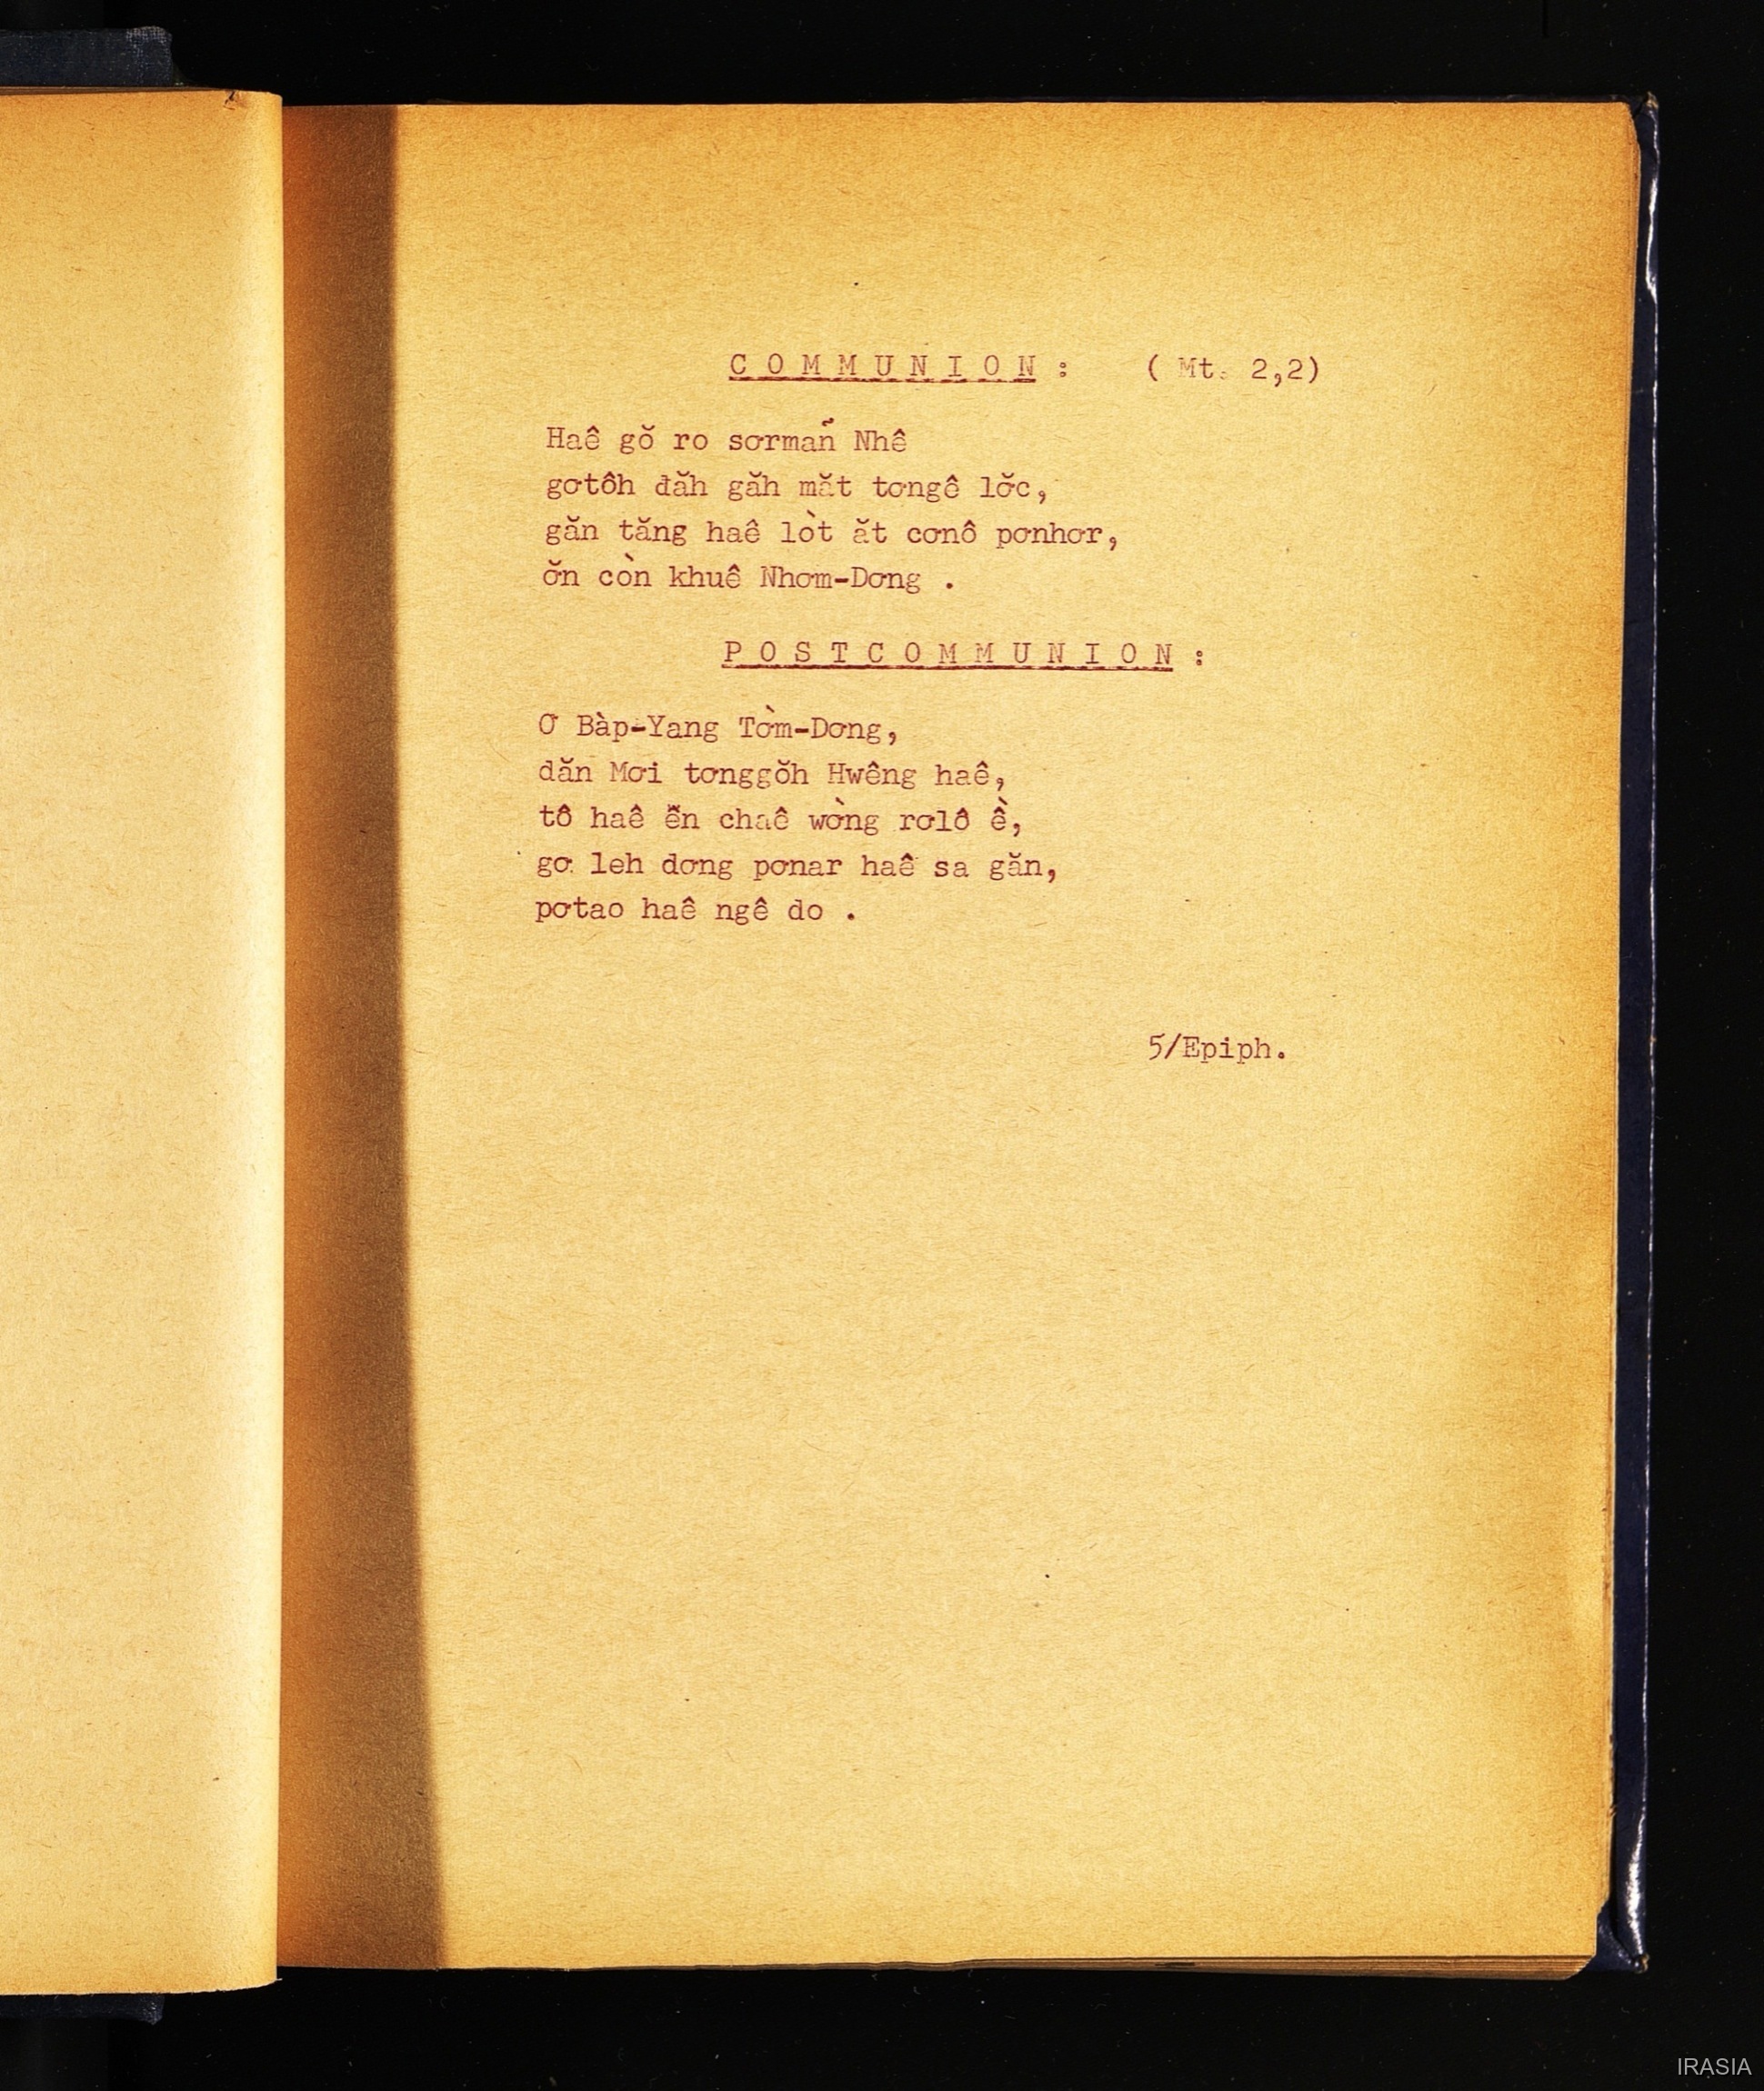 COMMUNION : ( Mt. 2,2)
Haê gŏ ro sơrmañ̉ Nhê
gơtôh đăh găh măt tơngê lơ̆c,
găn tăng haê lòt ăt cơnô pơnhơr,
ơ̆n còn khuê Nhơm-Dơng .
POSTCOMMUNION :
Ơ Bàp-Yang Tờm-Dơng,
dăn Mơi tơnggŏh Hwêng haê,
tô haê ê̆n chaê wờng rơlô ề,
gơ leh dơng pơnar haê sa găn,
pơtao haê ngê do .
5/Epiph.
IRASIA